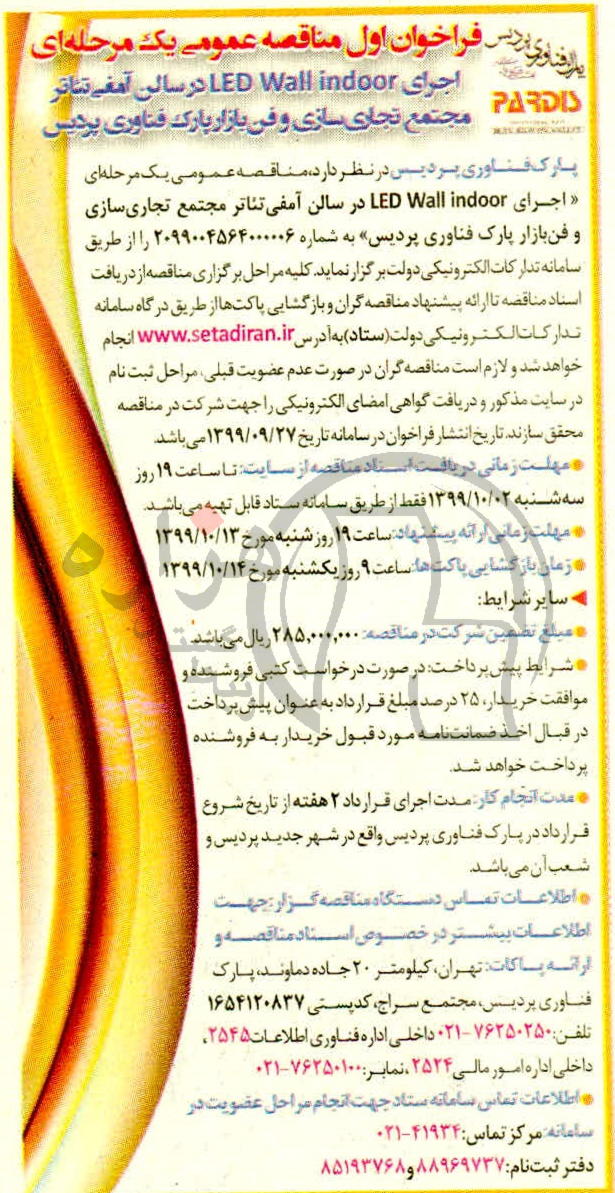 پارک فناوری پردیس
PARDIS
فراخوان اول مناقصه عمومی یک مرحله‌ای
اجرای LED Wall indoor در سالن آمفی تئاتر
مجتمع تجاری سازی و فن بازار پارک فناوری پردیس
پارک فناوری پردیس در نظر دارد، مناقصه عمومی یک مرحله‌ای
« اجرای LED Wall indoor در سالن آمفی تئاتر مجتمع تجاری‌سازی
و فن‌بازار پارک فناوری پردیس» به شماره ۲۰۹۹۰۰۴۵۶۴۰۰۰۰۰۶ را از طریق
سامانه تدارکات الکترونیکی دولت برگزار نماید. کلیه مراحل برگزاری مناقصه از دریافت
اسناد مناقصه تا ارائه پیشنهاد مناقصه گران و بازگشایی پاکت‌ها از طریق درگاه سامانه
تدارکات الکترونیکی دولت (ستاد) به آدرس www.setadiran.ir انجام
خواهد شد و لازم است مناقصه گران در صورت عدم عضویت قبلی، مراحل ثبت نام
در سایت مذکور و دریافت گواهی امضای الکترونیکی را جهت شرکت در مناقصه
محقق سازند. تاریخ انتشار فراخوان در سامانه تاریخ ۱۳۹۹/۰۹/۲۷ می باشد.
مهلت زمانی دریافت اسناد مناقصه از سایت: تا ساعت ۱۹ روز
سه‌شنبه ۱۳۹۹/۱۰/۰۲ فقط از طریق سامانه ستاد قابل تهیه می‌باشد.
مهلت زمانی ارائه پیشنهاد: ساعت ۱۹ روز شنبه مورخ ۱۳۹۹/۱۰/۱۳
زمان بازگشایی پاکت‌ها: ساعت ۹ روز یکشنبه مورخ ۱۳۹۹/۱۰/۱۴
سایر شرایط:
مبلغ تضمین شرکت در مناقصه: ۲۸۵,۰۰۰,۰۰۰ ریال می‌باشد.
شرایط پیش پرداخت: در صورت درخواست کتبی فروشنده و
موافقت خریدار، ۲۵ درصد مبلغ قرارداد به عنوان پیش پرداخت
در قبال اخذ ضمانت‌نامه مورد قبول خریدار به فروشنده
پرداخت خواهد شد.
مدت انجام کار: مدت اجرای قرارداد ۲ هفته از تاریخ شروع
قرارداد در پارک فناوری پردیس واقع در شهر جدید پردیس و
شعب آن می‌باشد.
اطلاعات تماس دستگاه مناقصه گزار: جهت
اطلاعات بیشتر در خصوص اسناد مناقصه و
ارائه پاکات: تهران، کیلومتر ۲۰ جاده دماوند، پارک
فناوری پردیس، مجتمع سراج، کدپستی ۱۶۵۴۱۲۰۸۳۷
تلفن: ۷۶۲۵۰۲۵۰-۰۲۱ داخلی اداره فناوری اطلاعات ۲۵۴۵،
داخلی اداره امور مالی ۲۵۲۴، نمابر: ۷۶۲۵۰۱۰۰-۰۲۱
اطلاعات تماس سامانه ستاد جهت انجام مراحل عضویت در
سامانه: مرکز تماس: ۴۱۹۳۴-۰۲۱
دفتر ثبت‌نام: ۸۸۹۶۹۷۳۷ و ۸۵۱۹۳۷۶۸
هزاره